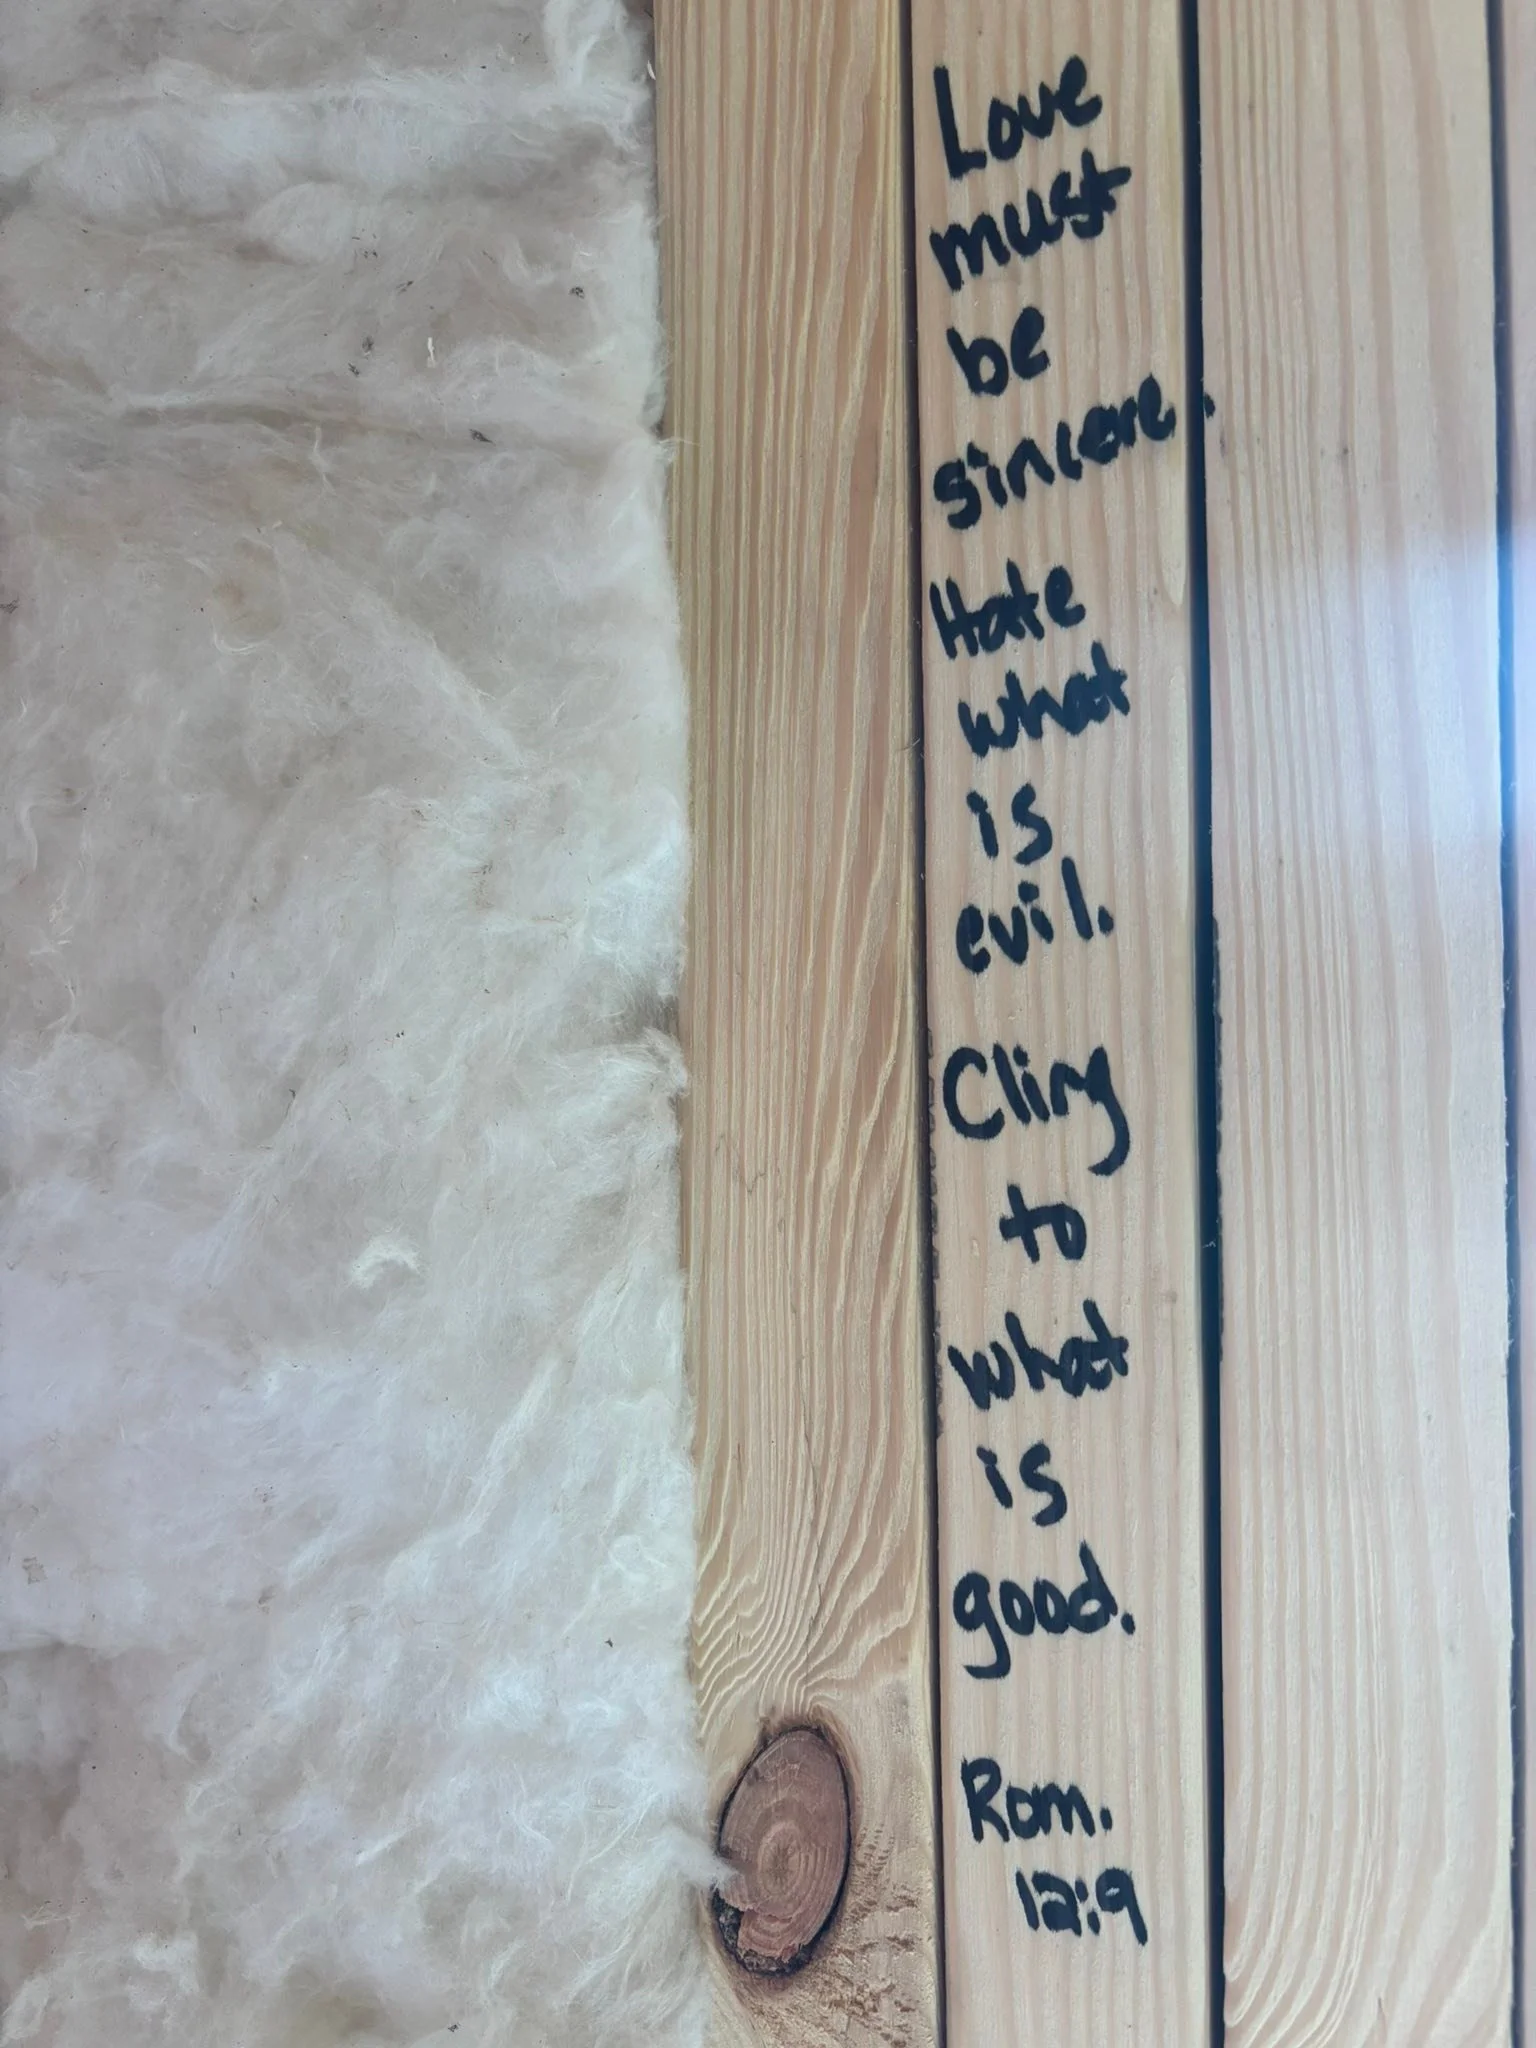 Love
must
be
sincere.
Hate
what
is
evil.
Cling
to
what
is
good.
Rom.
12:9